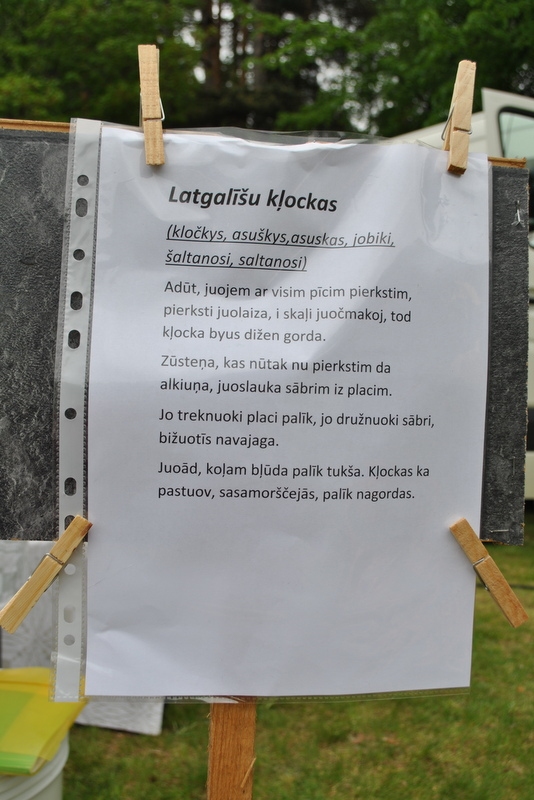 Latgalīšu kļockas
(kločkys, asuškys,asuskas, jobiki,
šaltanosi, saltanosi)
Adūt, juojem ar visim pīcim pierkstim,
pierksti juolaiza, i skaļi juočmakoj, tod
kļocka byus dižen gorda.
Zūsteņa, kas nūtak nu pierkstim da
alkiuņa, juoslauka sābrim iz placim.
Jo treknuoki placi palīk, jo družnuoki sābri,
bižuotīs navajaga.
Juoād, koļam bļūda palīk tukša. Kļockas ka
pastuov, sasamorščejās, palīk nagordas.